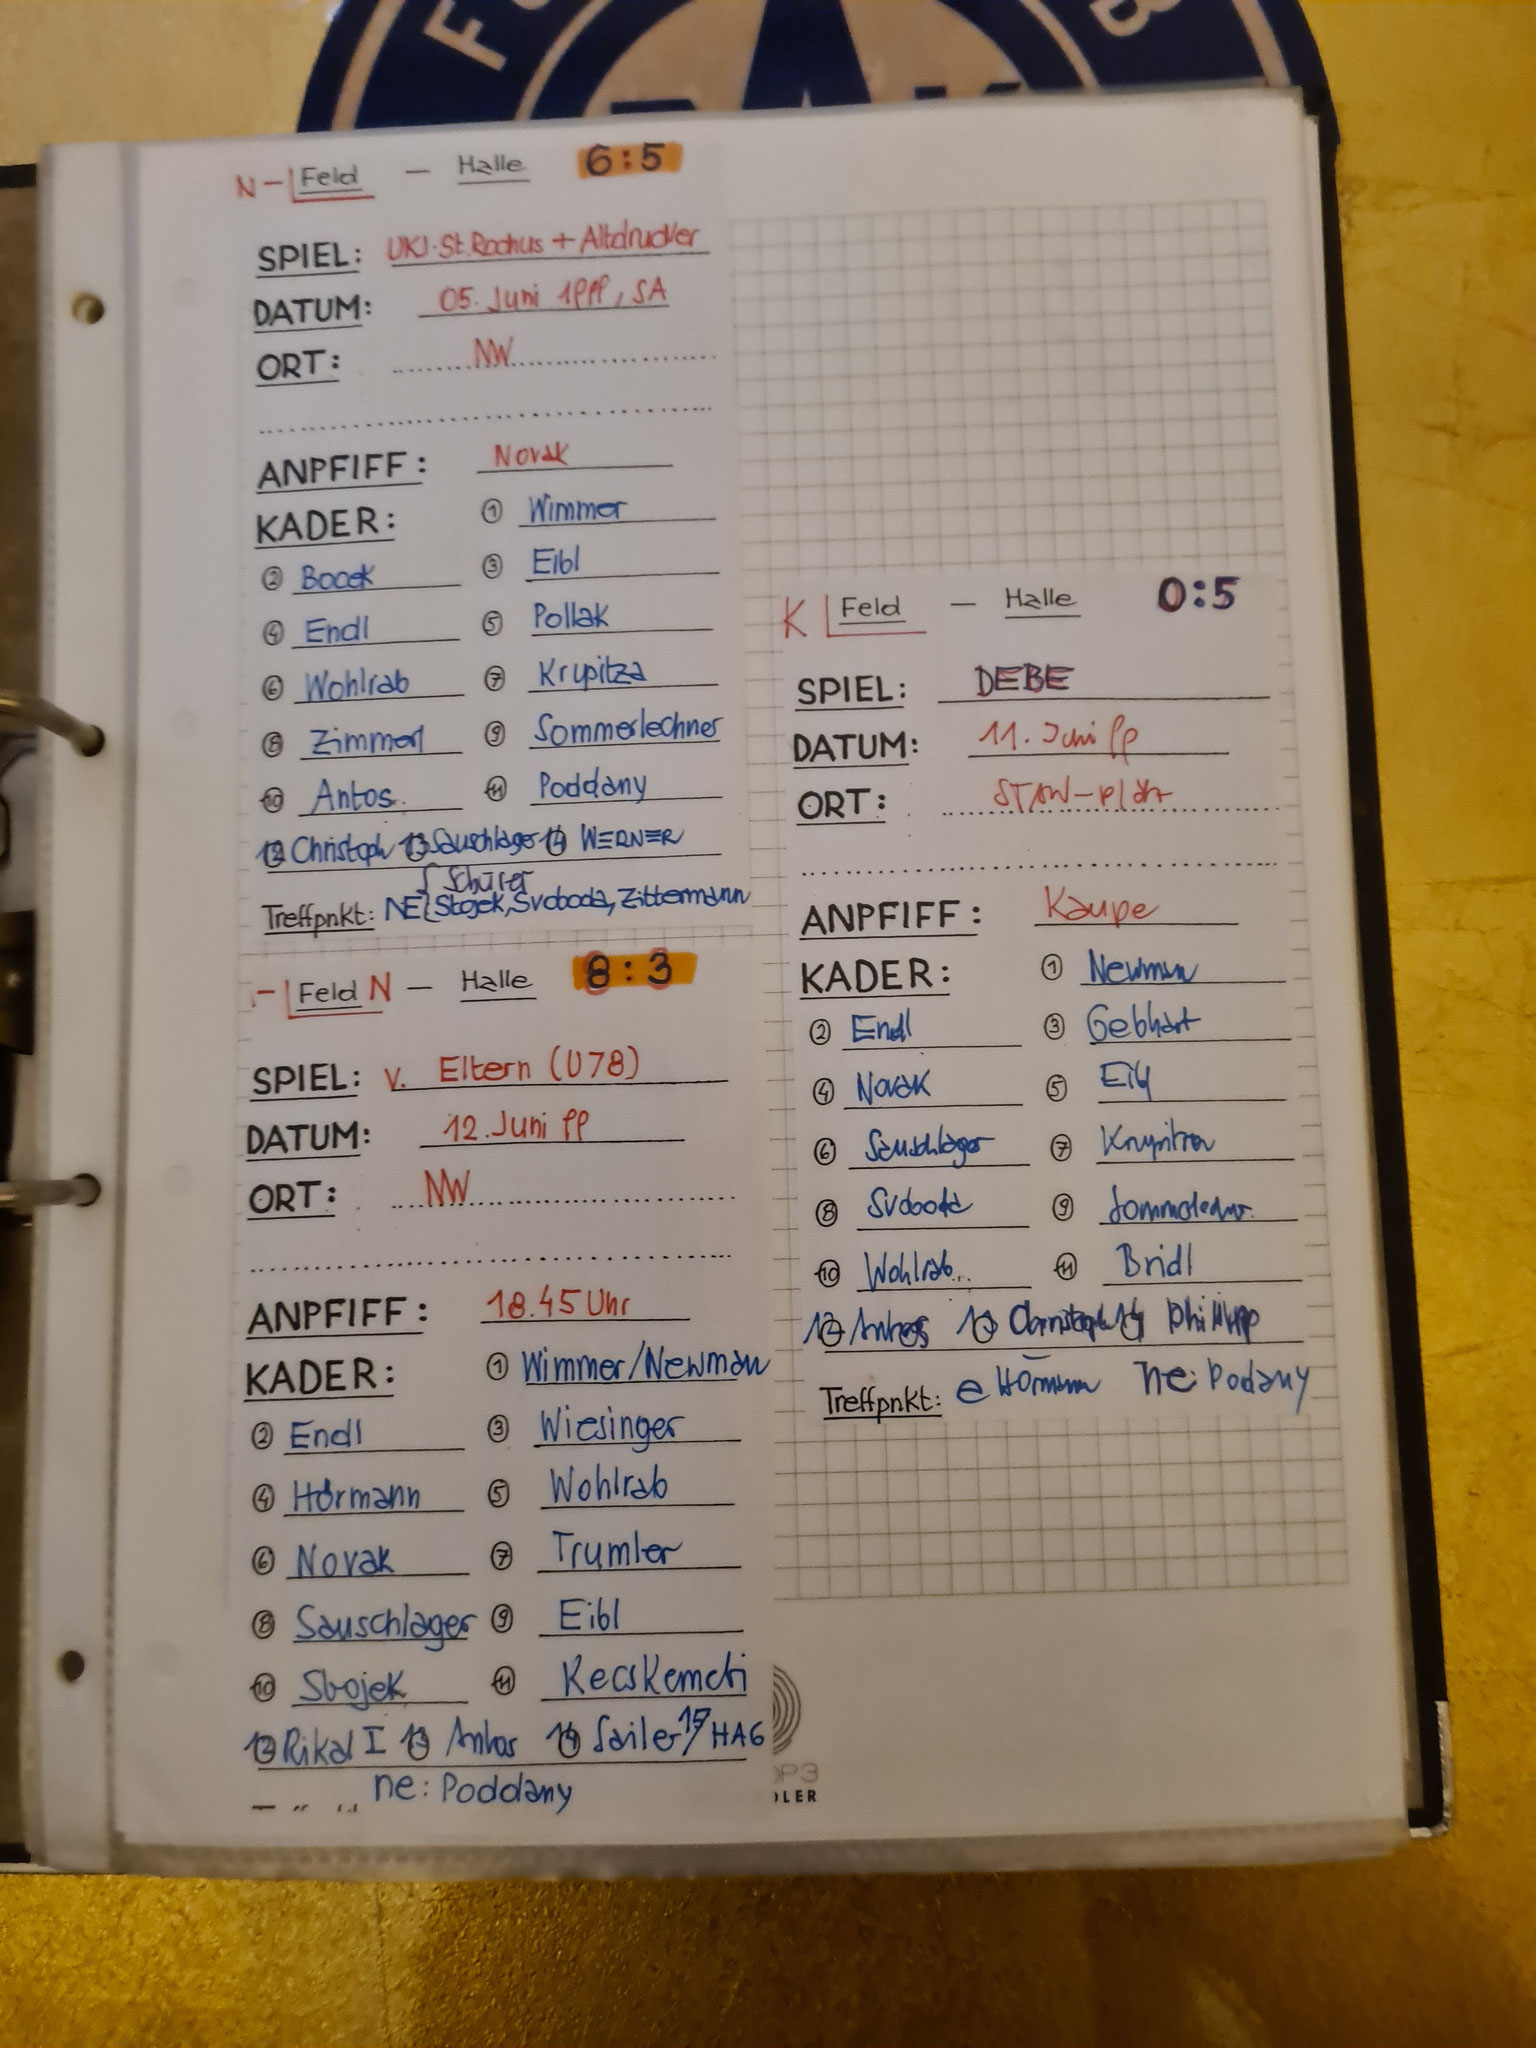 N - Feld - Halle 6:5
SPIEL: UKJ-St.Rochus + Altdrucker
DATUM: 05. Juni 1999, SA
ORT: NW
ANPFIFF: Novak
KADER: 1 Wimmer
2 Bocek 3 Eibl
4 Endl 5 Pollak
6 Wohlrab 7 Krupitza
8 Zimmerl 9 Sommerlechner
10 Antos 11 Poddany
12 Christoph 13 Sauschlager 14 WERNER
Schürer
Treffpnkt: NE Stojek, Svoboda, Zittermann
- Feld N - Halle 8:3
SPIEL: v. Eltern (U78)
DATUM: 12. Juni 99
ORT: NW
ANPFIFF: 18.45 Uhr
KADER: 1 Wimmer/Newman
2 Endl 3 Wiesinger
4 Hörmann 5 Wohlrab
6 Novak 7 Trumler
8 Sauschlager 9 Eibl
10 Stojek 11 Kecskemeti
12 Rikal I 13 Antos 14 Sailer 15 HAG
ne: Poddany
K Feld - Halle 0:5
SPIEL: DEBE
DATUM: 11. Juni 99
ORT: STAW-Platz
ANPFIFF: Kaupe
KADER: 1 Newman
2 Endl 3 Gebhart
4 Novak 5 Eibl
6 Sauschlager 7 Krupitza
8 Svoboda 9 Sommerlechner
10 Wohlrab.. 11 Bridl
12 Antos 13 Christoph 14 Philipp
Treffpnkt: e Hörmann ne: Podany